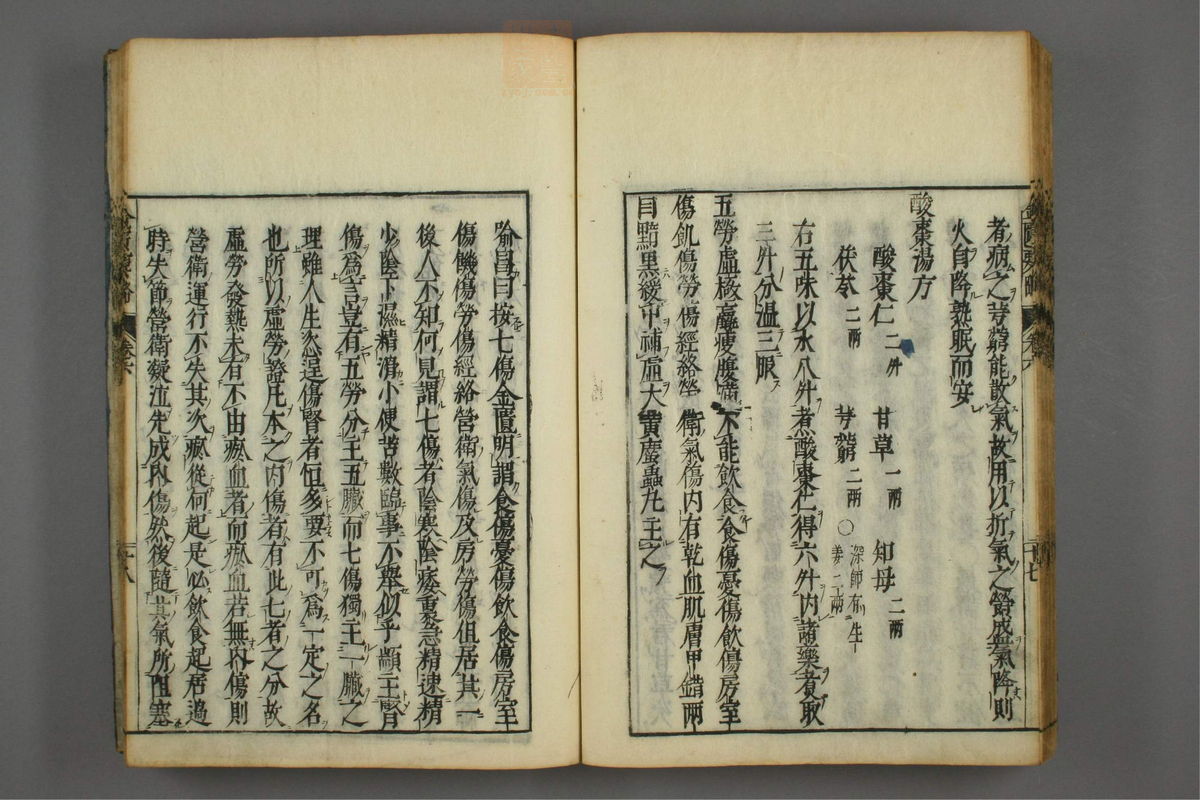 者病之芎藭能散氣故用以折氣之欝盛氣降則
火自降熱眠而安
酸棗湯方
酸棗仁二升 甘草一兩 知母二兩
茯苓二兩 芎藭二兩〇深師有生
姜二兩
右五味以水八升煮酸棗仁得六升内諸藥煮取
三升分温三服
五勞虚極羸瘦腹滿不能飲食食傷憂傷飲傷房室
傷飢傷勞傷經絡榮衛氣傷内有乾血肌膚甲錯兩
目黯黒緩中補虚大黄䗪蟲丸主之
喻昌曰按七傷金匱明謂食傷憂傷飲食傷房室
傷饑傷勞傷經絡營衛氣傷及房勞傷但居其一
後人不知何見謂七傷者陰寒陰痿裏急精速精
少陰下濕精滑小便苦數臨事不舉似乎顓主腎
傷爲言豈有五勞分主五臓而七傷獨主一臓之
理雖人生恣逞傷腎者恒多要不可爲一定之名
也所以虚勞證凡本之内傷者有此七者之分故
虚勞發熱未有不由瘀血者而瘀血若無内傷則
營衛運行不失其次瘀從何起是必飲食起居過
時失節營衛凝泣先成内傷然後隨其氣所阻塞